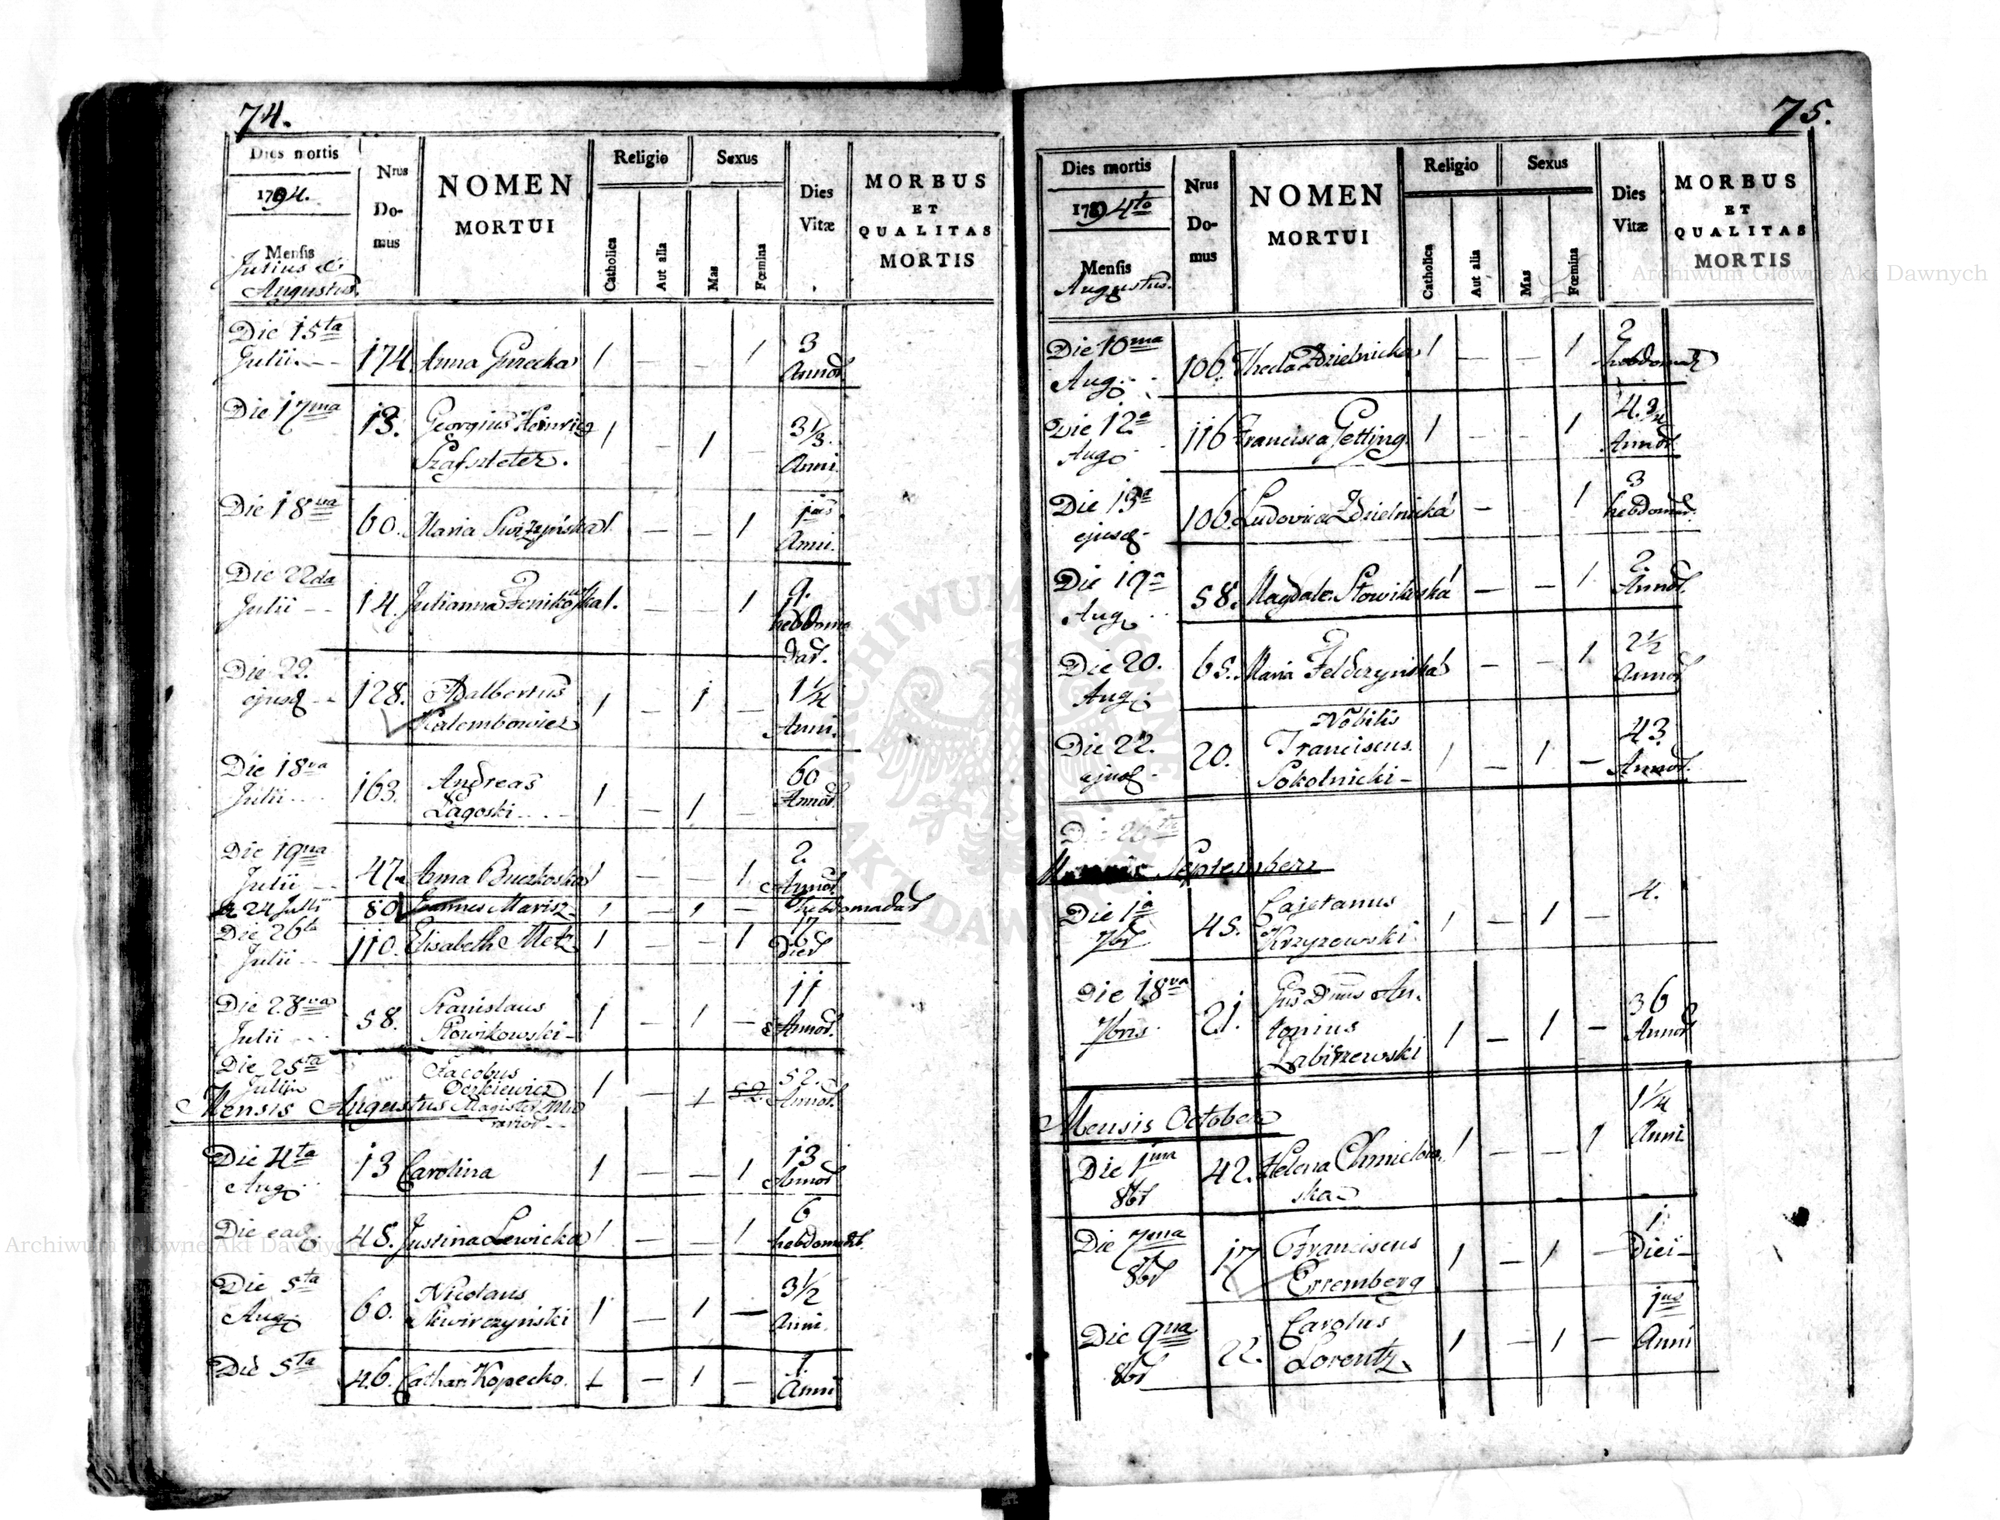 74.
Dies mortis
1794.
Mensis
Julius &
Augustus.
Nrus
Do-
mus
NOMEN
MORTUI
Religio
Catholica
Aut alia
Sexus
Mas
Fœmina
Dies
Vitæ
MORBUS
ET
QUALITAS
MORTIS
Die 15ta
Julii 174 Anna Gurecka 1 — — 1 3
Annor.
Die 17ma 13. Georgius Heinrich 1 — 1 3 1/3
Szafszteter. Anni.
Die 18va 60. Maria 1 — — 1 1jus
Anni.
Die 22da
Julii 14. Julianna 1. — — 1 9.
hebdoma
dar.
Die 22.
ejusd 128. Adalbertus 1 — 1 — 1 1/4
Kalembowicz Anni.
Die 18va
Julii 163. Andreas 1 — 1 — 60
Lagoski Annor.
Die 19na
Julii 47. Anna Buczkoska 1 — — 1 2.
Annor.
24 Julii 80. Joannes Marisz 1 — 1 — hebdomadar
Die 26ta
Julii 110. Elisabeth Metz 1 — — 1 17
Dier
Die 28va
Julii 58. Stanislaus 1 — 1 — 11
Słowikowski Annor.
Die 25ta
Julii Jacobus 1 — 1 52 52.
Oczkiewicz Annor.
Mensis Augustus Magister Mu
rarior
Die 4ta
Aug 13 Carolina 1 — — 1 13
Annor
Die ead. 45. Justina Lewicka 1 — — 1 6
hebdomadar.
Die 5ta
Aug 60. Nicolaus 1 — 1 — 3 1/2
Skwirczyński Anni.
Die 5ta 46. Cathar. Kopecko. 1 — 1 — 1.
Anni
75.
Dies mortis
1794to
Mensis
Augustus.
Nrus
Do-
mus
NOMEN
MORTUI
Religio
Catholica
Aut alia
Sexus
Mas
Fœmina
Dies
Vitæ
MORBUS
ET
QUALITAS
MORTIS
Die 10ma
Aug. 106. Thecla Zdzielnicka 1 — — 1 2
hebdomad
Die 12a
Aug 116 Francisca Getting. 1 — — 1 4. 3/4
Annor
Die 13a
ejusd 106. Ludovica Zdzielnicka 1 — — 1 3
hebdomad.
Die 19a
Aug 58. Magdale. Słowikoska 1 — — 1 2.
Annor.
Die 20.
Aug. 65. Maria Felczynska 1 — — 1 2 1/2
Annor
Die 22.
ejusd 20. Nobilis 1 — 1 — 43.
Franciscus Annor.
Sokolnicki
Die 26ta
Mensis September
Die 1a
7br 45. Cajetanus 1 — 1 — 4.
Krzyzewski
Die 18va
7bris 21. Gsus Dnus An- 1 — 1 — 36
tonius Annor
Labiszewski
Mensis October
Die 1ma
8br 42. Helena Chmielow 1 — — 1 1 1/4
ska Anni
Die 7ma
8br 17 Franciscus 1 — 1 — 1
Erremberg Diei
Die 9na
8br 22. Carolus 1 — 1 — 1jus
Lorentz Anni
Archiwum Główne Akt Dawnych
Archiwum Główne Akt Dawnych
ARCHIWUM GŁÓWNE AKT DAWNYCH